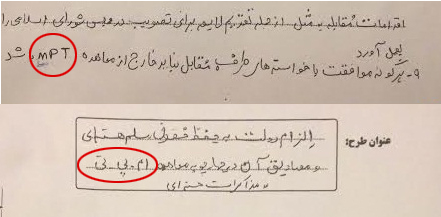 اقدامات مقابله به مثل از جمله تقدیم لایحه برای تصویب در مجلس شورای اسلامی را
بعمل آورد
۹- هرگونه موافقت با خواسته های طرف مقابل نباید خارج از معاهده MPT باشد
عنوان طرح:
الزام دولت به حفظ حقوق مسلم هسته ای
و مصادیق آن در چارچوب معاهده ام. پی. تی
و مذاکرات هسته ای